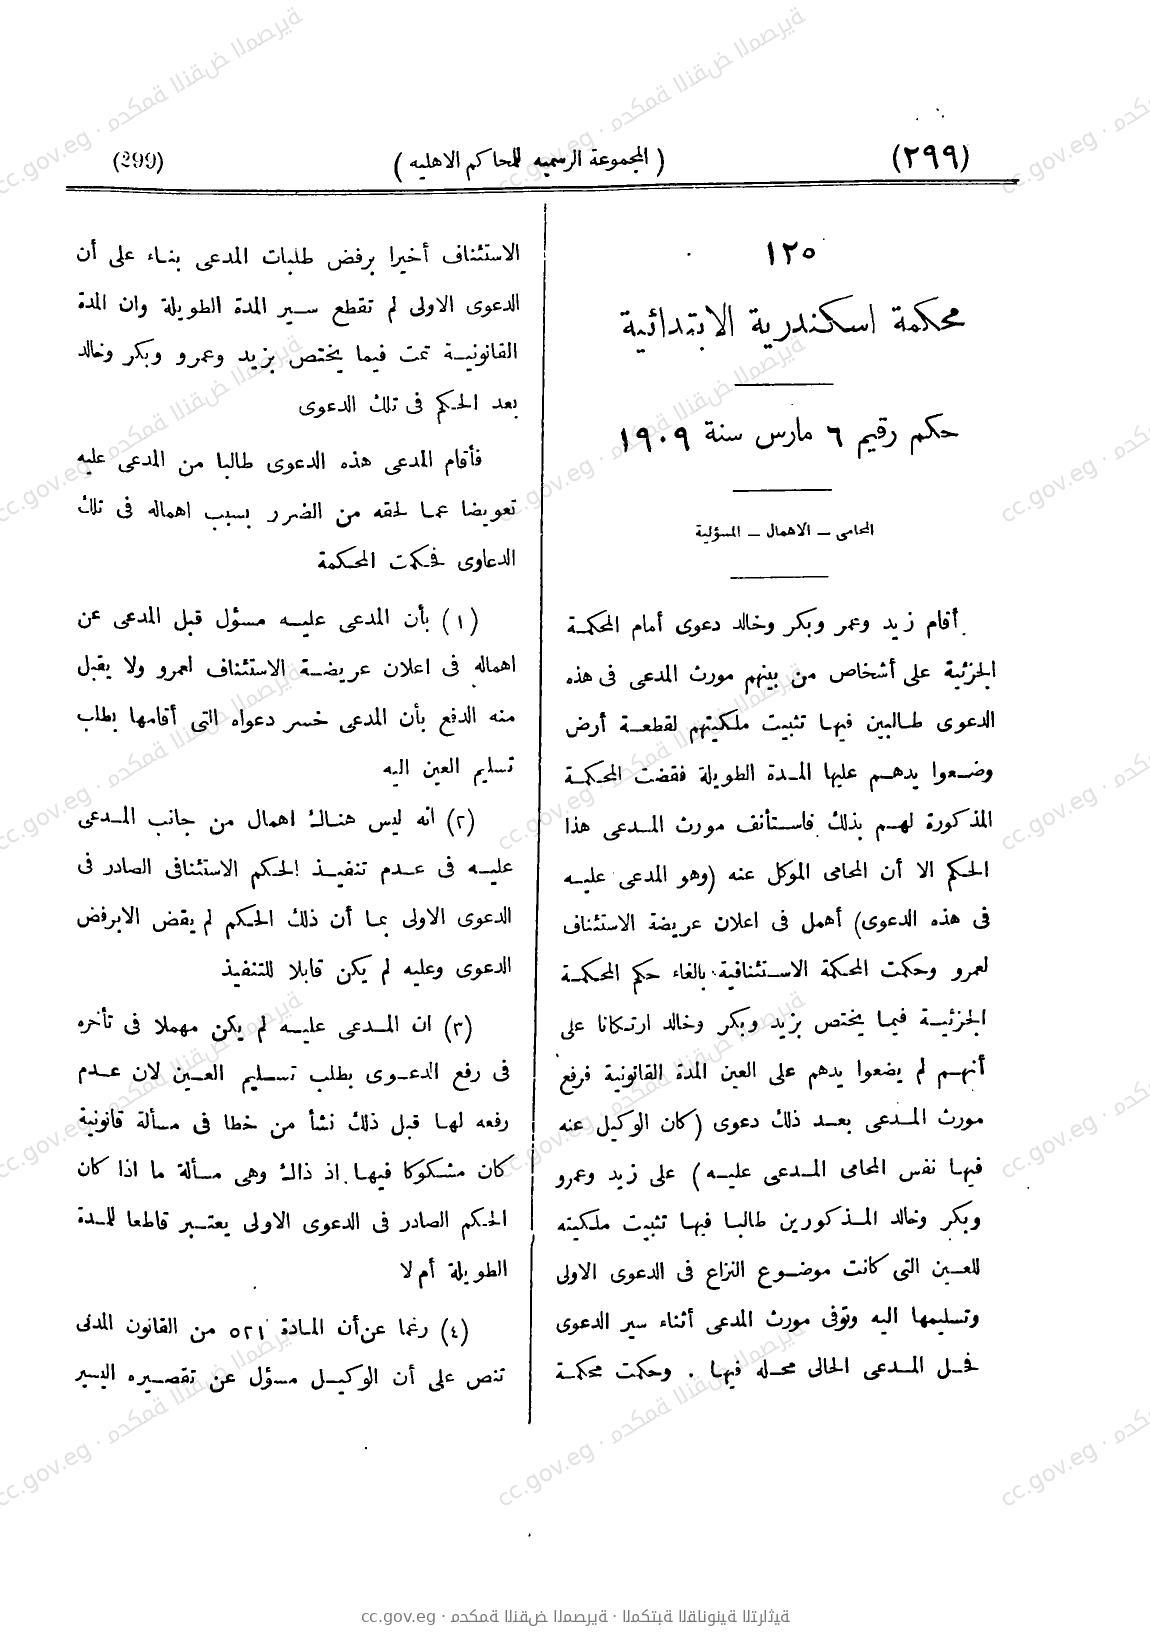 (٢٩٩)
( المجموعة الرسميه للمحاكم الاهليه )
(299)
١٢٥
محكمة اسكندرية الابتدائية
حكم رقيم ٦ مارس سنة ١٩٠٩
المحامى – الاهمال – المسؤلية
أقام زيد وعمر وبكر وخالد دعوى أمام المحكمة
الجزئية على أشخاص من بينهم مورث المدعى فى هذه
الدعوى طالبين فيها تثبيت ملكيتهم لقطعة أرض
وضعوا يدهم عليها المدة الطويلة فقضت المحكمة
المذكورة لهم بذلك فاستأنف مورث المدعى هذا
الحكم الا أن المحامى الموكل عنه (وهو المدعى عليه
فى هذه الدعوى) أهمل فى اعلان عريضة الاستئناف
لعمرو وحكمت المحكمة الاستئنافية بالغاء حكم المحكمة
الجزئية فيما يختص بزيد وبكر وخالد ارتكانا على
أنهم لم يضعوا يدهم على العين المدة القانونية فرفع
مورث المدعى بعد ذلك دعوى (كان الوكيل عنه
فيها نفس المحامى المدعى عليه) على زيد وعمرو
وبكر وخالد المذكورين طالبا فيها تثبيت ملكيته
للعين التى كانت موضوع النزاع فى الدعوى الاولى
وتسليمها اليه وتوفى مورث المدعى أثناء سير الدعوى
فحل المدعى الحالى محله فيها . وحكمت محكمة
الاستئناف أخيرا برفض طلبات المدعى بناء على أن
الدعوى الاولى لم تقطع سير المدة الطويلة وان المدة
القانونية تمت فيما يختص بزيد وعمرو وبكر وخالد
بعد الحكم فى تلك الدعوى
فأقام المدعى هذه الدعوى طالبا من المدعى عليه
تعويضا عما لحقه من الضرر بسبب اهماله فى تلك
الدعاوى فحكمت المحكمة
(١) بأن المدعى عليه مسؤل قبل المدعى عن
اهماله فى اعلان عريضة الاستئناف لعمرو ولا يقبل
منه الدفع بأن المدعى خسر دعواه التى أقامها بطلب
تسليم العين اليه
(٢) انه ليس هناك اهمال من جانب المدعى
عليه فى عدم تنفيذ الحكم الاستئنافى الصادر فى
الدعوى الاولى بما أن ذلك الحكم لم يقض الابرفض
الدعوى وعليه لم يكن قابلا للتنفيذ
(٣) ان المدعى عليه لم يكن مهملا فى تأخره
فى رفع الدعوى بطلب تسليم العين لان عدم
رفعه لها قبل ذلك نشأ من خطا فى مسألة قانونية
كان مشكوكا فيها اذ ذاك وهى مسألة ما اذا كان
الحكم الصادر فى الدعوى الاولى يعتبر قاطعا للمدة
الطويلة أم لا
(٤) رغما عن أن المادة ٥٢١ من القانون المدنى
تنص على أن الوكيل مسؤل عن تقصيره اليسير
cc.gov.eg · محكمة النقض المصرية · المكتبة القانونية التراثية